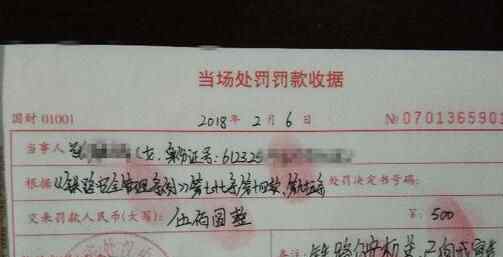 当场处罚罚款收据
国财 01001 2018年 2月 6日 №0701365901
当事人 (女,身份证号:612325
根据《铁路安全管理条例》第七十七条第十四款,第 处罚决定书号码:
交来罚款人民币(大写):伍佰圆整 ¥:500
备注:铁路公安机关